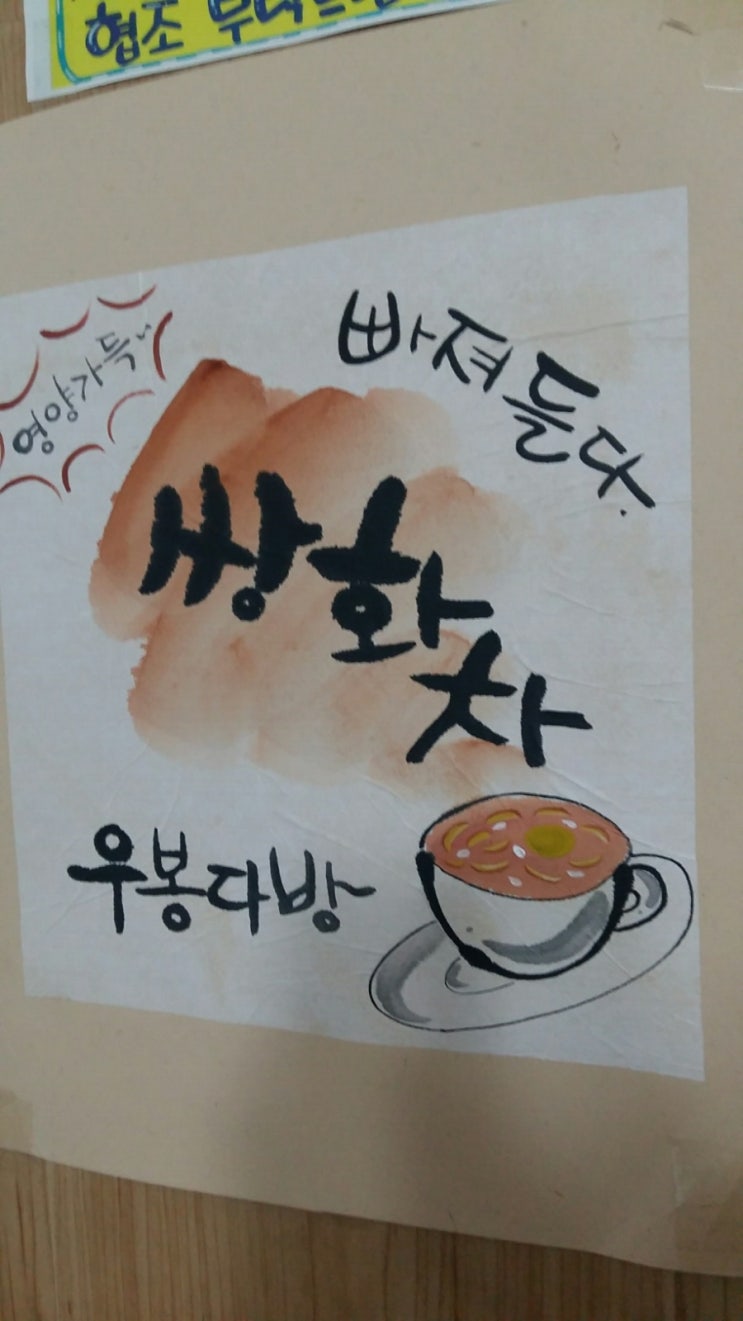 협조
영양가득
빠져든다.
쌍화차
우봉다방